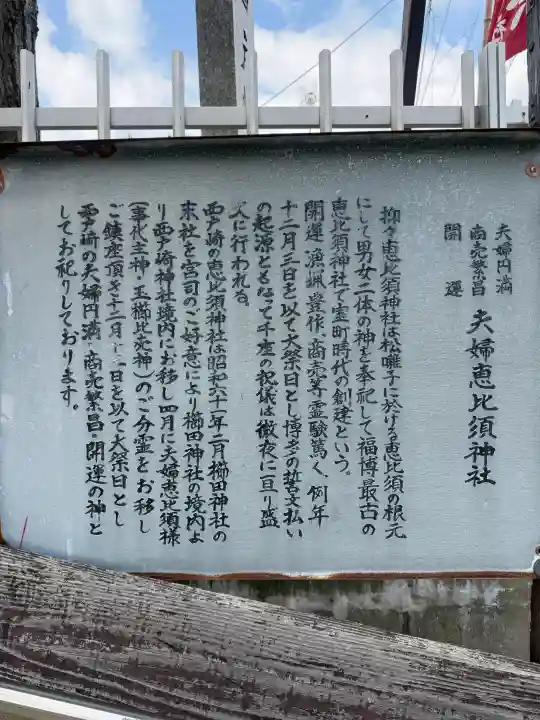 夫婦円満
商売繁昌
開運
夫婦恵比須神社
抑々恵比須神社は松囃子に於ける恵比須の根元
にして男女二体の神を奉祀して福博最古の
恵比須神社で室町時代の創建という。
開運・漁猟・豊作・商売等霊験篤く、例年
十二月三日を以て大祭日とし博多の誓文払い
の起源ともなって千座の祝儀は徹夜に亘り盛
大に行われる。
西戸崎の恵比須神社は昭和六十一年二月櫛田神社の
末社を宮司のご好意により櫛田神社の境内よ
り西戸崎神社境内にお移し四月に夫婦恵比須様
(事代主神・玉櫛比売神)のご分霊をお移し
ご鎮座頂き十二月 日を以て大祭日とし
西戸崎の夫婦円満・商売繁昌・開運の神と
してお祀りしております。